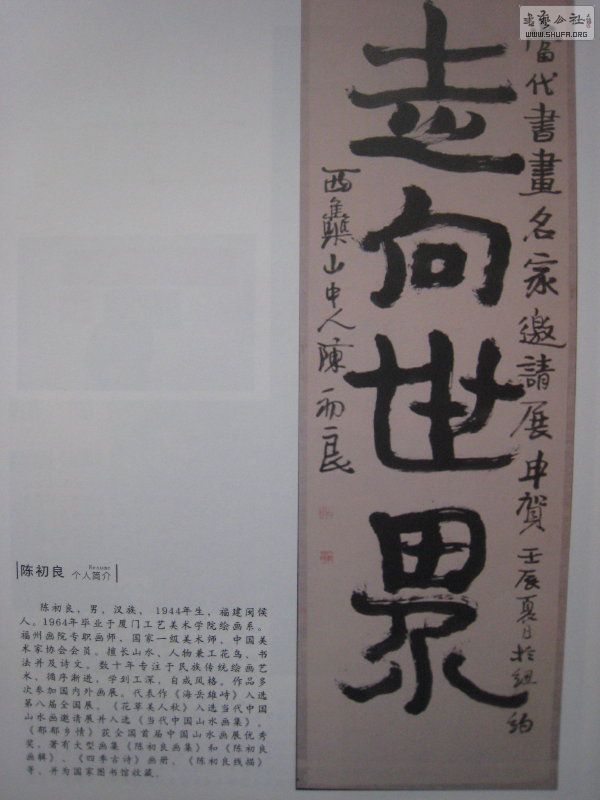 書藝公社
WWW.SHUFA.ORG
當代書畫名家邀請展申賀 壬辰夏日於紐約
走向世界
西山中人陳初良
陈初良
Resume
个人简介
陈初良，男，汉族，1944年生，福建闽侯
人。1964年毕业于厦门工艺美术学院绘画系。
福州画院专职画师、国家一级美术师、中国美
术家协会会员。擅长山水、人物兼工花鸟、书
法并及诗文。数十年专注于民族传统绘画艺
术，循序渐进，学到工深，自成风格。作品多
次参加国内外画展。代表作《海岳雄峙》入选
第八届全国展，《花草美人秋》入选当代中国
山水画邀请展并入选《当代中国山水画集》。
《郁郁乡情》获全国首届中国山水画展优秀
奖。著有大型画集《陈初良画集》和《陈初良
画辑》、《四季古诗》画册、《陈初良线描》
等，并为国家图书馆收藏。